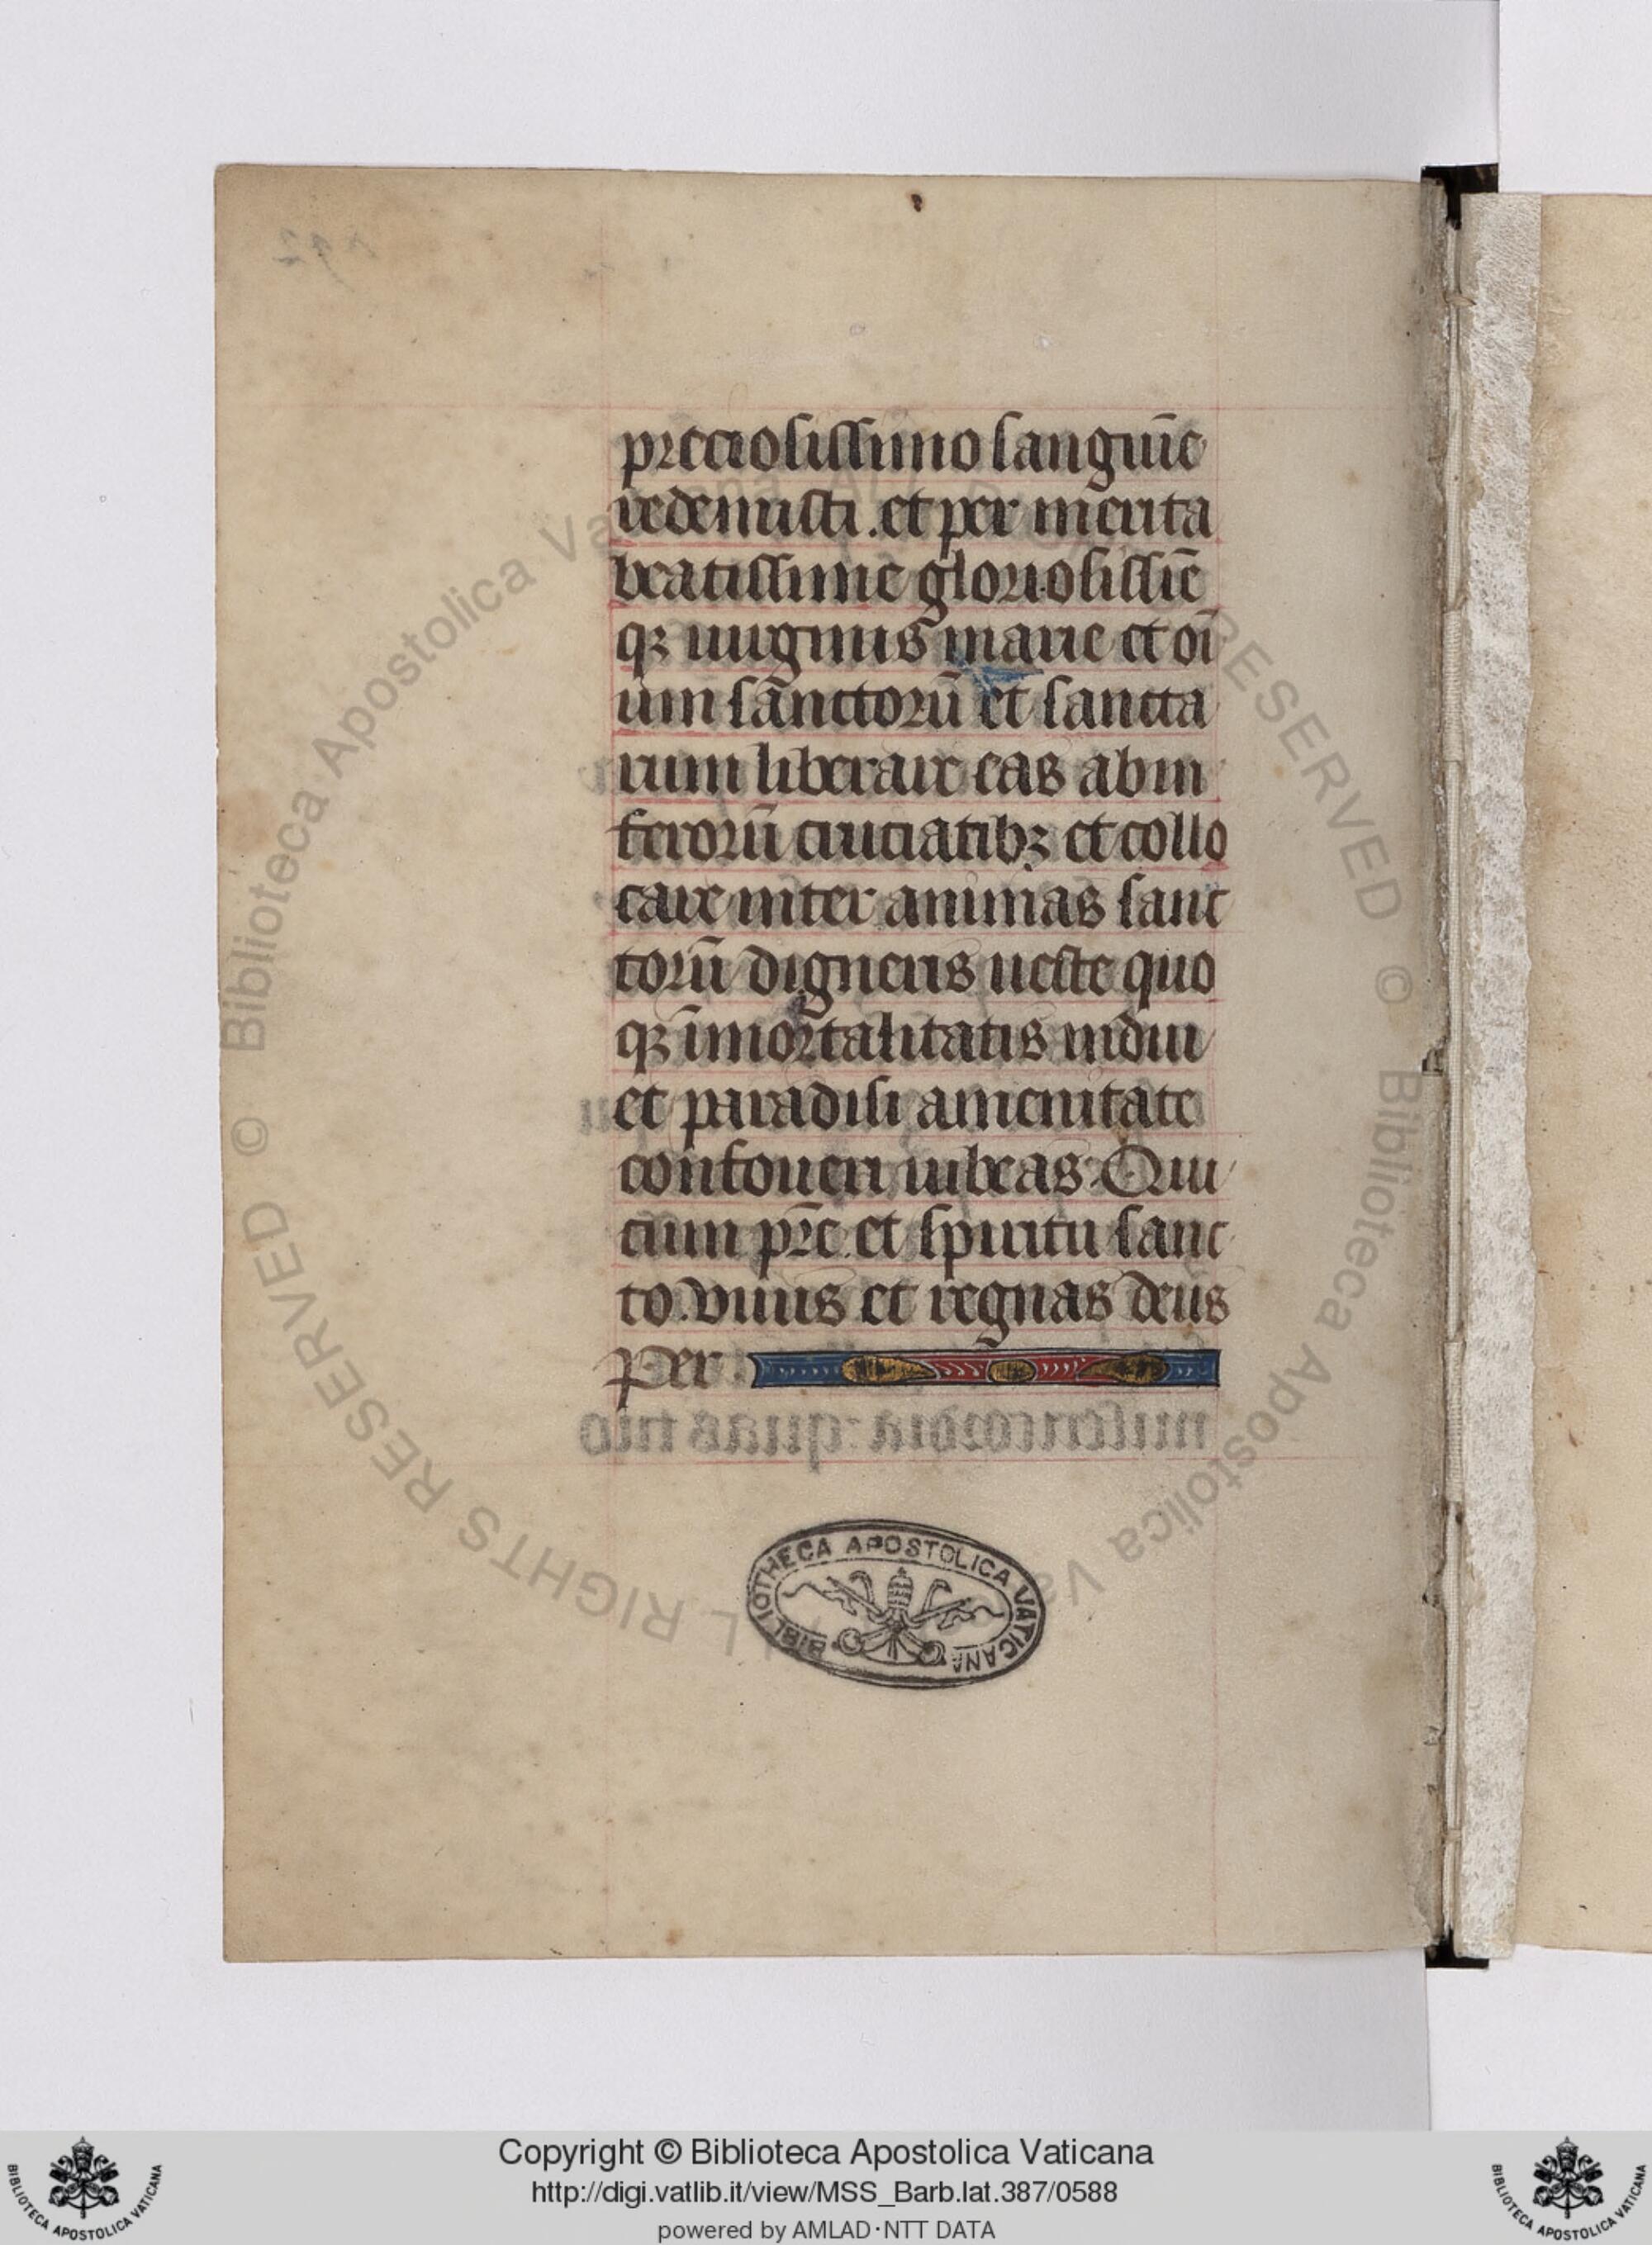 preciosissimo sanguīe
redemisti . et per merita
beatissime gloriosissīe
qꝫ uirginis marie et oī
um sanctorū et sancta
rum liberare eas ab in
ferorū cruciatibꝫ et collo
care inter animas sanc
torū digneris ueste quo
qꝫ īmortalitatis indui
et paradisi amenitate
confoueri iubeas. Qui
cum pr̄e et spiritu sanc
to . viuis et regnas deus
per .
BIBLIOTHECA APOSTOLICA VATICANA
© Biblioteca Apostolica Vaticana ALL RIGHTS RESERVED © Biblioteca Apostolica Vaticana ALL RIGHTS RESERVED
Copyright © Biblioteca Apostolica Vaticana
http://digi.vatlib.it/view/MSS_Barb.lat.387/0588
powered by AMLAD·NTT DATA
BIBLIOTECA APOSTOLICA VATICANA
BIBLIOTECA APOSTOLICA VATICANA